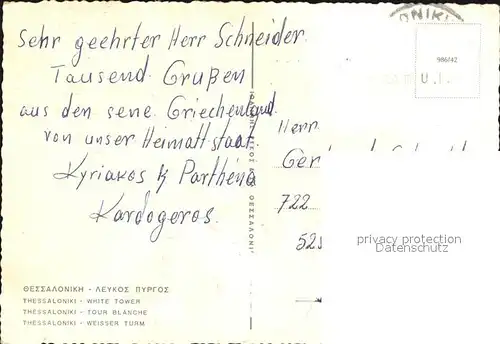 Sehr geehrter Herr Schneider.
Tausend Grußen
aus den sene Griechenland
von unser Heimattstaat.
Kyriakos & Parthena
Kardogeros.
ΘΕΣΣΑΛΟΝΙΚΗ - ΛΕΥΚΟΣ ΠΥΡΓΟΣ
THESSALONIKI - WHITE TOWER
THESSALONIKI - TOUR BLANCHE
THESSALONIKI - WEISSER TURM
ONIKI
986/42
U.I.
Herr
Ger
722
52
privacy protection
Datenschutz